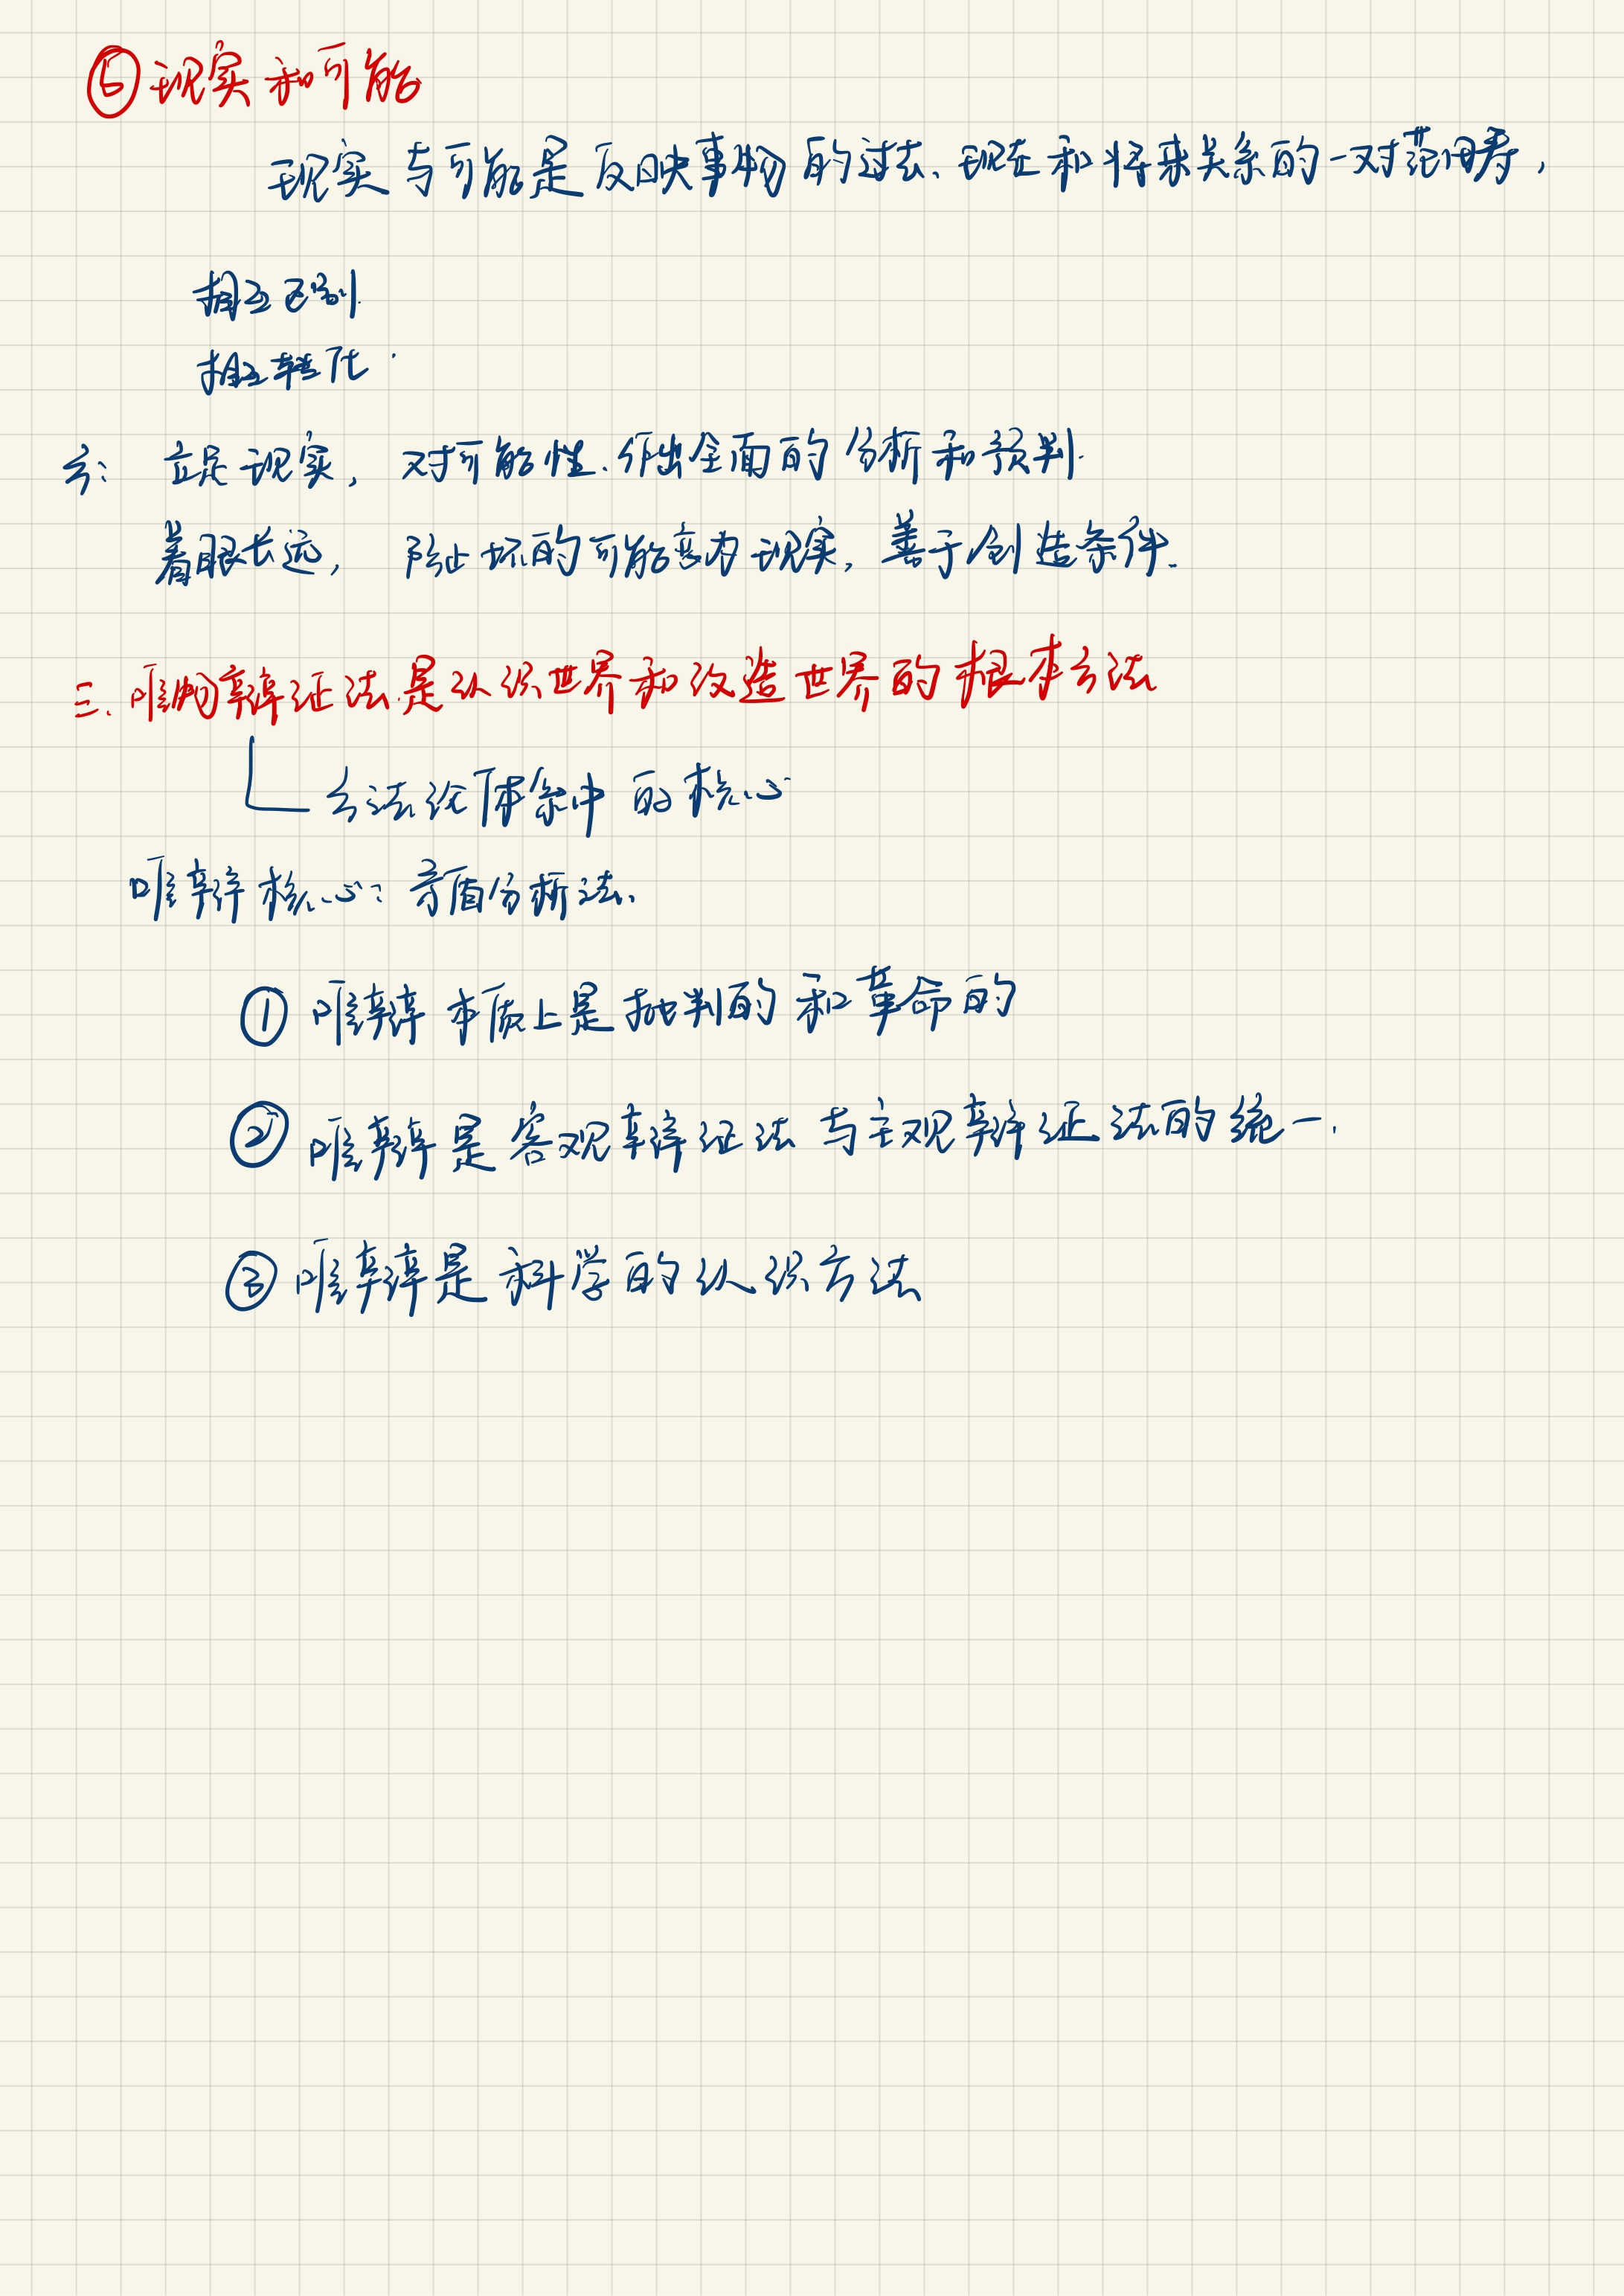 ⑤现实和可能
现实与可能是反映事物的过去、现在和将来关系的一对范畴,
相互区别.
相互转化.
方: 立足现实, 对可能性.作出全面的分析和预判.
着眼长远, 防止坏的可能变为现实, 善于创造条件.
三.唯物辩证法.是认识世界和改造世界的根本方法
方法论体系中的核心
唯辩核心:矛盾分析法.
① 唯辩本质上是批判的和革命的
② 唯辩是客观辩证法与主观辩证法的统一.
③ 唯辩是科学的认识方法